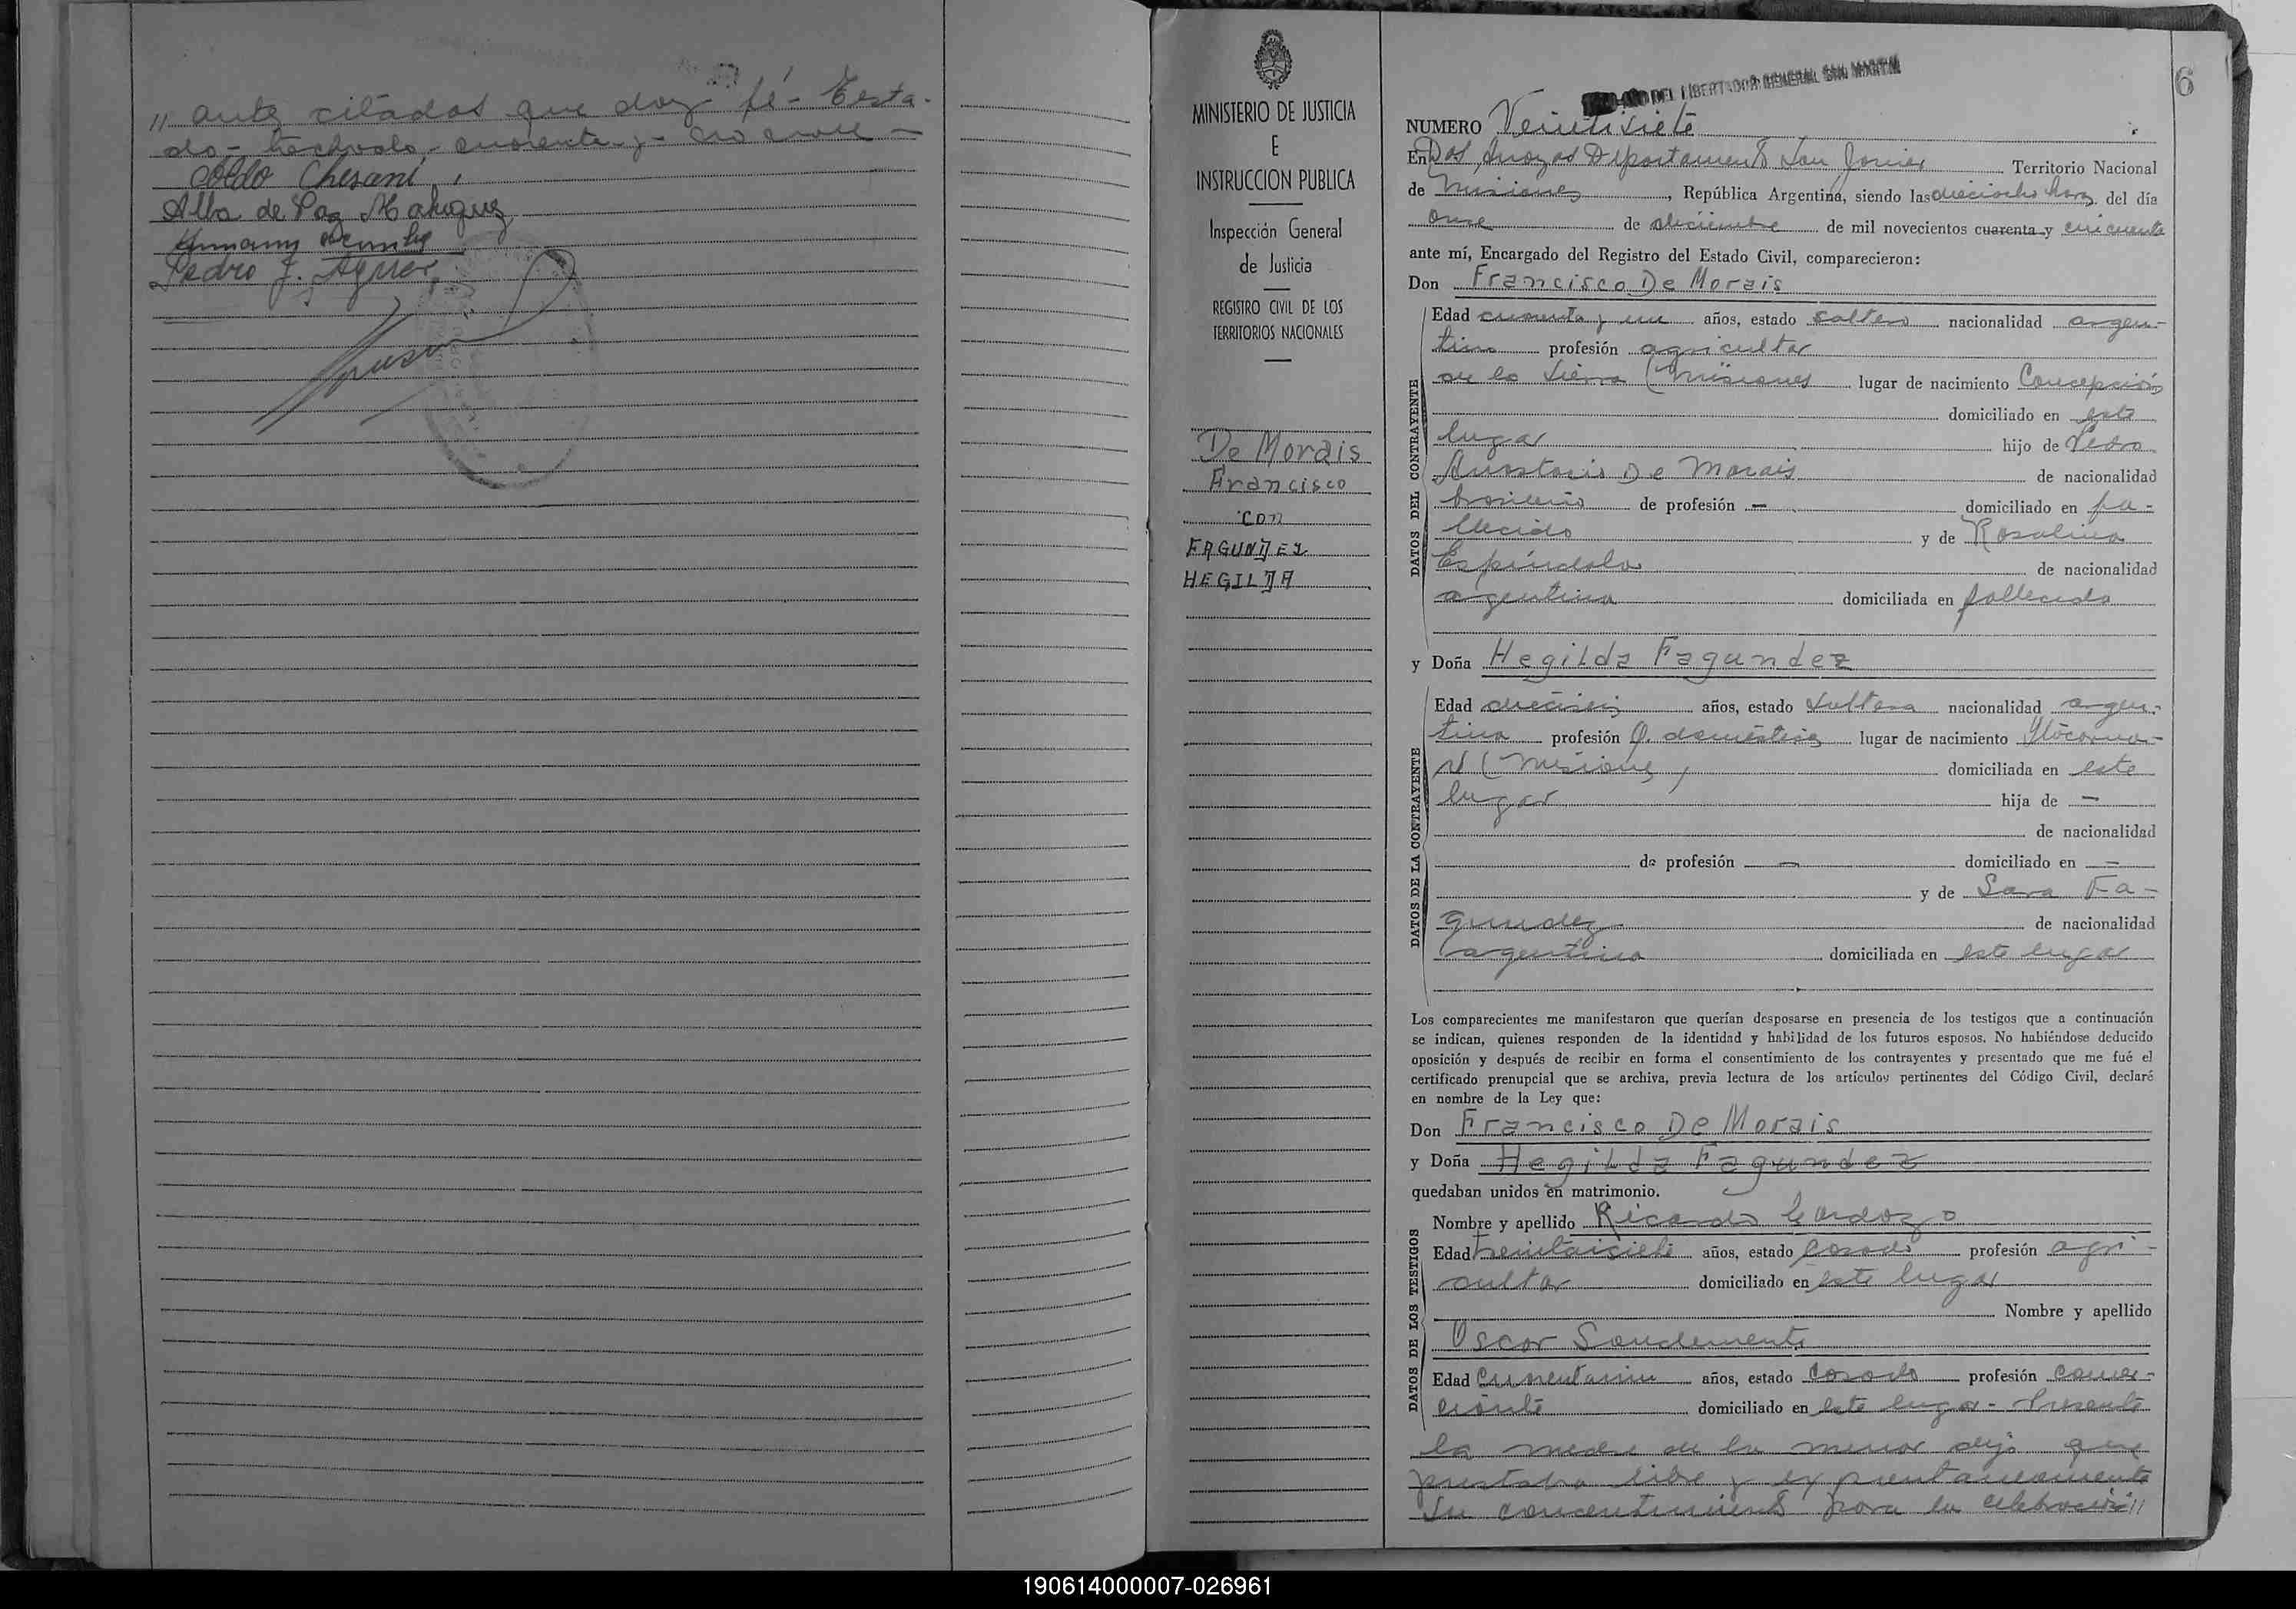 " ante citados que doy fé - Testa-
do - tachado - cuarenta y -
Coldo Chesani
Alba de Paz Malaquez
Pedro J. Aguer
MINISTERIO DE JUSTICIA
E
INSTRUCCION PUBLICA
Inspección General
de Justicia
REGISTRO CIVIL DE LOS
TERRITORIOS NACIONALES
De Morais
Francisco
con
FAGUNDEZ
HEGILDA
AÑO DEL LIBERTADOR GENERAL SAN MARTIN
6
NUMERO Veintisiete
En Dos Departamento San Javier Territorio Nacional
de Misiones, República Argentina, siendo las dieciocho horas del día
once de diciembre de mil novecientos cuarenta y cincuenta
ante mí, Encargado del Registro del Estado Civil, comparecieron:
Don Francisco De Morais
DATOS DEL CONTRAYENTE
Edad cuarenta y un años, estado soltero nacionalidad argen-
tino profesión agricultor
de la Sierra (Misiones lugar de nacimiento Concepción
domiciliado en este
lugar hijo de Pedro
Anastacio De Morais de nacionalidad
brasileño de profesión - domiciliado en fa-
llecido y de Rosalina
Espíndola de nacionalidad
argentina domiciliada en fallecida
y Doña Hegilda Fagundez
DATOS DE LA CONTRAYENTE
Edad dieciseis años, estado soltera nacionalidad argen-
tina profesión Q. domésticos lugar de nacimiento
(Misiones) domiciliada en este
lugar hija de -
de nacionalidad
de profesión - domiciliado en -
y de Sara Fa-
gundez de nacionalidad
argentina domiciliada en este lugar
Los comparecientes me manifestaron que querían desposarse en presencia de los testigos que a continuación
se indican, quienes responden de la identidad y habilidad de los futuros esposos. No habiéndose deducido
oposición y después de recibir en forma el consentimiento de los contrayentes y presentado que me fué el
certificado prenupcial que se archiva, previa lectura de los artículos pertinentes del Código Civil, declaré
en nombre de la Ley que:
Don Francisco De Morais
y Doña Hegilda Fagundez
quedaban unidos en matrimonio.
DATOS DE LOS TESTIGOS
Nombre y apellido Ricardo Cardozo
Edad treintaisiete años, estado casado profesión agri-
cultor domiciliado en este lugar
Nombre y apellido
Oscar Sandemente
Edad cuarentaiun años, estado casado profesión comer-
ciante domiciliado en este lugar - Presente
la madre de la menor dijo que
prestaba libre y expontaneamente
su concentimiento para la celebración "
190614000007-026961